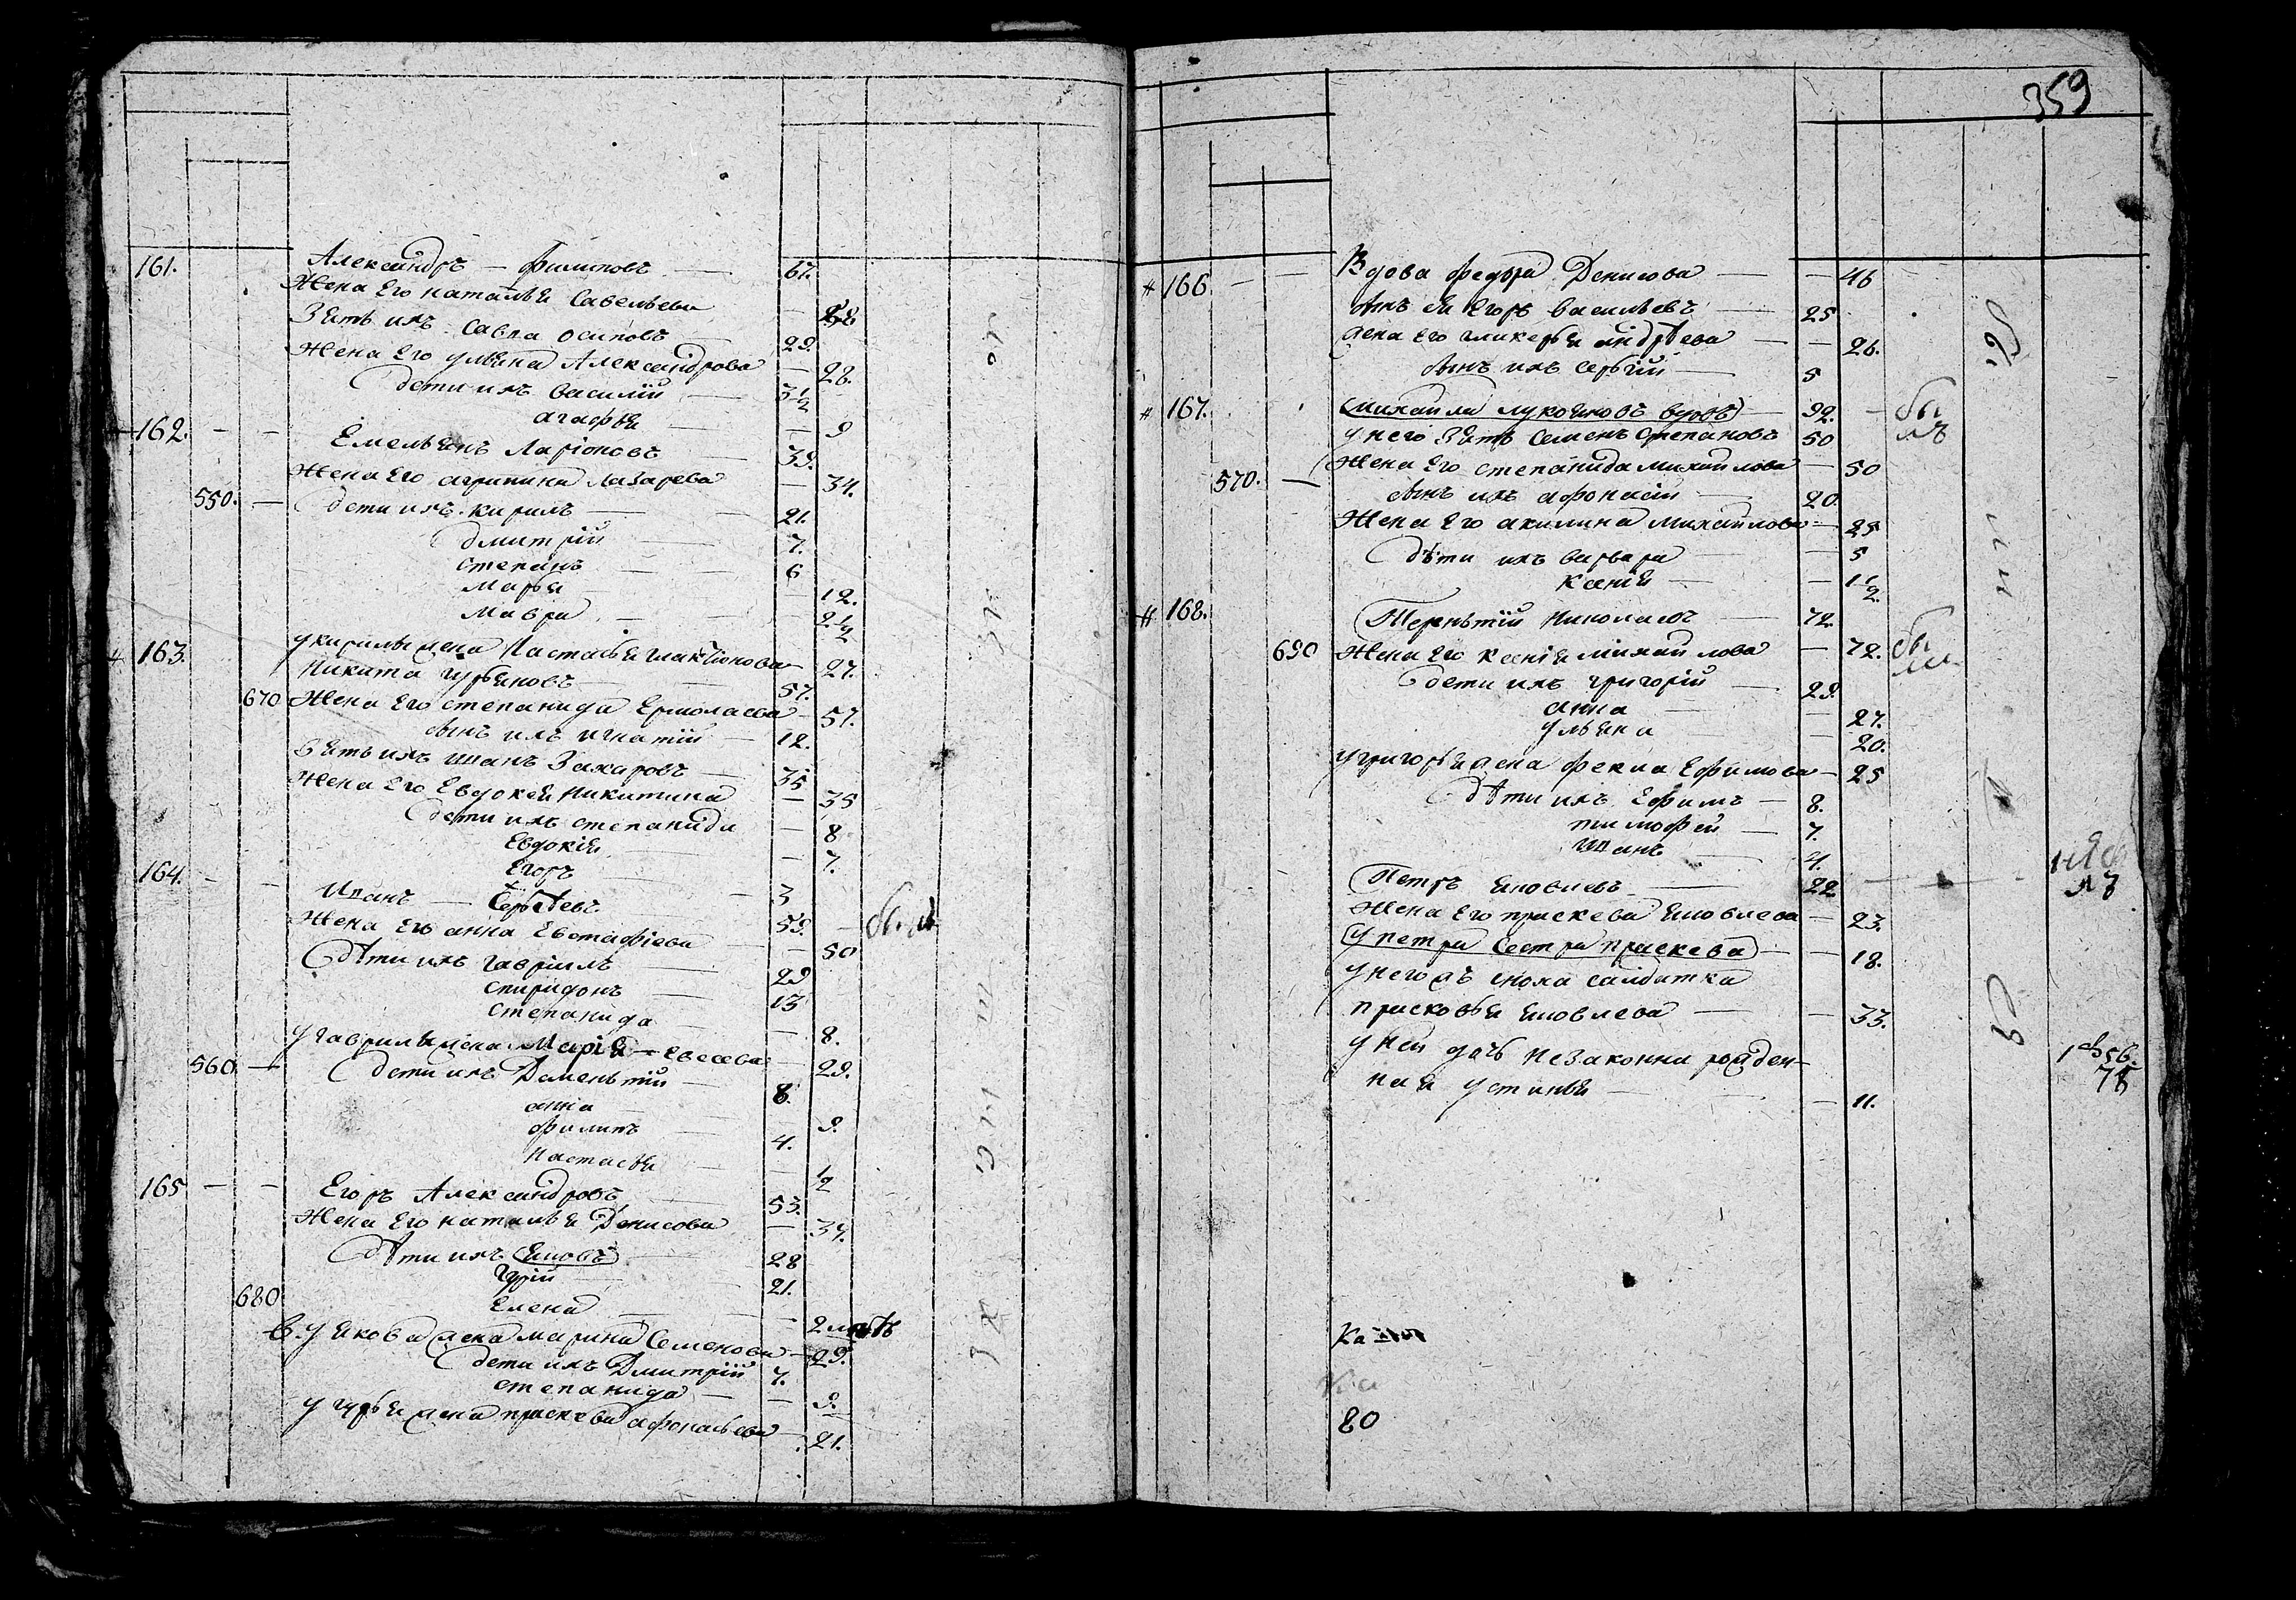 161. Александръ — Филиповъ — 67.
Жена Его наталья Савельева —
Зять ихъ Савва осиповъ — 29.
Жена Его ульяна Александрова — 28.
дети ихъ василий — 3 1/2
агафья — 9
162. — — Емельянъ Ларіоновъ — 39.
Жена Его агрипина Лазарева — 34.
550. — дети ихъ кирилъ — 21.
дмитрій — 7.
степанъ — 6
марья — 12.
мавра — 2 1/2
у кирилы жена Настасья галактіонова — 27.
163. Никита гурьяновъ — 57.
670 Жена Его степанида Ермолаева — 57.
сынъ ихъ игнатій — 12.
Зять ихъ иванъ Захаровъ — 35
Жена Его Евдокея никитина — 35
дети ихъ степанида — 8
Евдокія — 7.
Егоръ — 3
164. — — Иванъ — Сергѣевъ — 59. — были
Жена Его анна Евстафіева — 50
дѣти ихъ гаврилъ — 29
спиридонъ — 13
степанида — 8.
у гаврилы жена Марія — Евсева — 29.
560. — дети ихъ Дементий — 8.
анна — 9.
филипъ — 4.
настасья — 1/2
165 — — Егоръ Александровъ — 53.
Жена Его наталья Денисова — 34.
дѣти ихъ яковъ — 28
гурій — 21.
680 Елена — 2
у якова жена марина Семенова — 29.
дети ихъ Дмитрій 7.
степанида — 9.
у гурья жена праскева афонасьева — 21.
359
# 166. — — Вдова федора Денисова — — 46
сынъ ея Егоръ васильевъ — 25
жена его гликерья андрѣева — — 26.
сынъ ихъ сергій — 5
# 167. Михаила лукояновъ вдовъ — 92. — былъ
у него Зять семенъ степановъ 50
Жена Его степанида михайлова — 50
570. — сынъ ихъ афонасій — 20.
Жена Его акилина михайлова — 25
дѣти ихъ варвара — — 5
ксенія — — 1 1/2
# 168. Терентій николаевъ — 72.
690 Жена Его ксенія михайлова — 72. были
дети ихъ григорій — 29.
анна — — 27.
ульяна — 20.
у григорья жена фекла Ефимова — 25
дѣти ихъ Ефимъ — 8.
тимофей — 7.
иванъ — 4.
Петръ яковлевъ — 22
Жена Его праскева яковлева — 23.
у петра сестра праскева — — 18.
у него жъ сноха салдатка
прасковья яковлева — — 33.
у ней дочь незаконна рожден-
ная устинья — — 11.
80